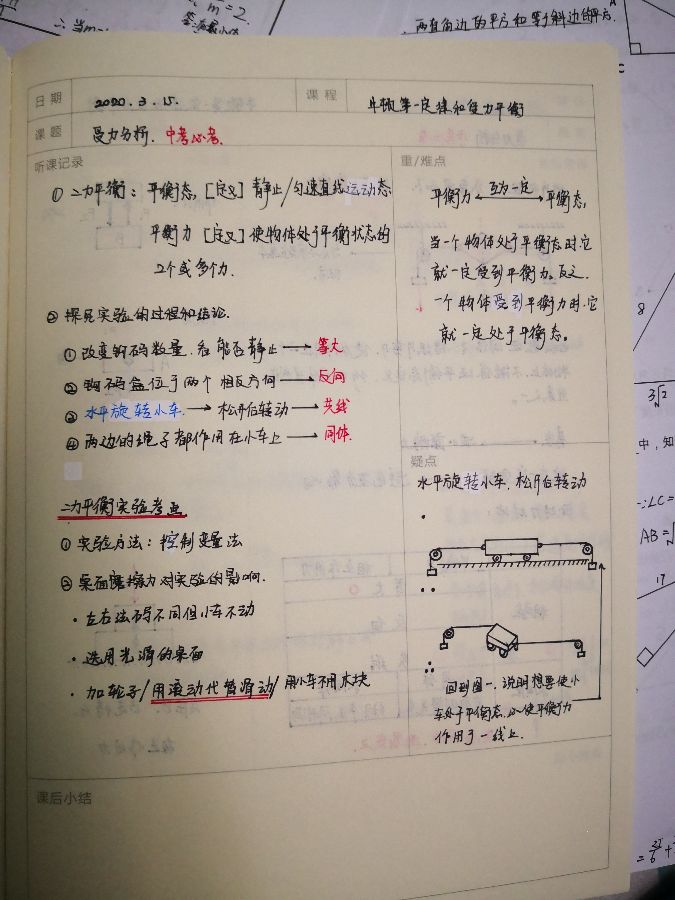 ∴ m = 2.
∴ 当m=
两直角边的平方和等于斜边的平方.
日期
2020.3.15.
课程
牛顿第一定律和受力平衡
课题
受力分析. 中考必考.
听课记录
① 二力平衡: 平衡态 [定义] 静止/匀速直线运动态
平衡力 [定义] 使物体处于平衡状态的
2个或多个力.
② 探究实验的过程和结论.
① 改变钩码数量, 看能否静止 → 等大
② 钩码盒位于两个相反方向 → 反向
③ 水平旋转小车. → 松开后转动 → 共线
④ 两边的绳子都作用在小车上 → 同体.
二力平衡实验考点
① 实验方法: 控制变量法
② 桌面摩擦力对实验的影响.
· 左右法码不同但小车不动
· 选用光滑的桌面
· 加轮子/用滚动代替滑动/用小车不用木块
重/难点
平衡力 ← 互为一定 → 平衡态.
当一个物体处于平衡态时.它
就一定受到平衡力. 反之.
一个物体受到平衡力时.它
就一定处于平衡态。
疑点
水平旋转小车, 松开后转动
回到图一, 说明想要使小
车处于平衡态. 必使平衡力
作用于一线上.
课后小结
C
8
3√2
中, 知
∵LC=
AB=
17